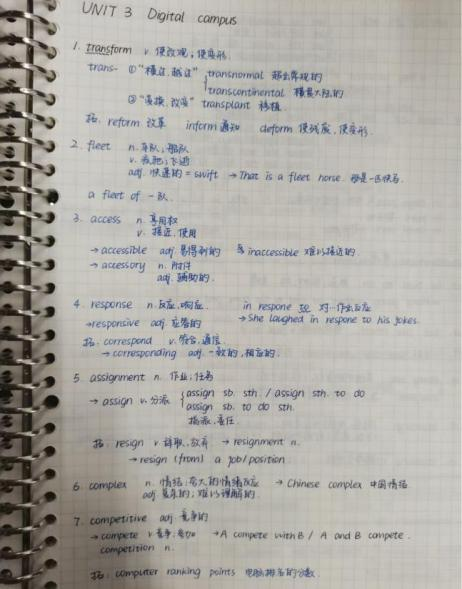 UNIT 3 Digital campus
1. transform v. 使改观；使变形.
trans- ①"横过,越过" transnormal 超出常规的
transcontinental 横贯大陆的
②"变换,改变" transplant 移植.
拓: reform 改革 inform 通知 deform 使残废,使变形.
2. fleet n. 车队；船队
v. 疾驰；飞逝
adj. 快速的 = swift → That is a fleet horse. 那是一匹快马.
a fleet of 一队.
3. access n. 享用权
v. 接近,使用
→ accessible adj. 易得到的 inaccessible 难以接近的.
→ accessory n. 附件
adj. 辅助的.
4. response n. 反应,响应. in respone to 对…作出反应
→responsive adj. 应答的 → She laughed in respone to his jokes.
拓: correspond v. 符合,通信.
→ corresponding adj. 一致的,相应的.
5. assignment n. 作业；任务
→ assign v. 分派 assign sb. sth. / assign sth. to do
assign sb. to do sth.
指派,委任
拓: resign v. 辞职,放弃 → resignment n.
→ resign (from) a job/position.
6. complex n. 情结；夸大的情绪反应 → Chinese complex 中国情结
adj. 复杂的；难以理解的.
7. competitive adj. 竞争的
→ compete v. 竞争；参加 → A compete with B / A and B compete.
competition n.
拓: computer ranking points 电脑排名的分数.